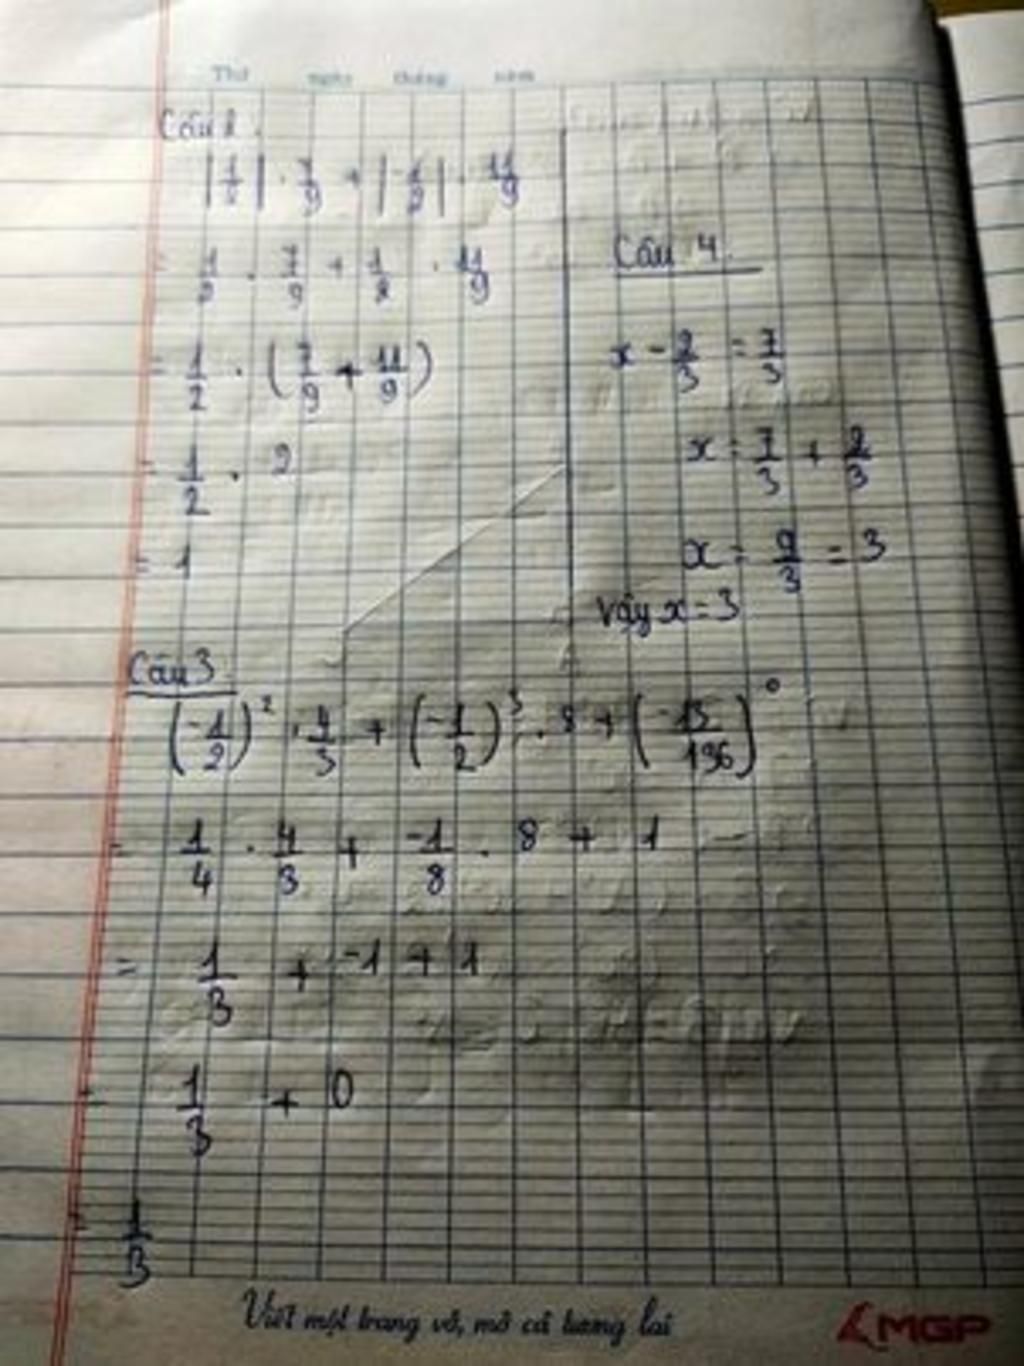 Thứ ngày tháng năm
Câu 2.
|1/2| . 7/9 + |-1/2| . 11/9
= 1/2 . 7/9 + 1/2 . 11/9
= 1/2 . (7/9 + 11/9)
= 1/2 . 2
= 1
Câu 4.
x - 2/3 = 7/3
x = 7/3 + 2/3
x = 9/3 = 3
Vậy x = 3
Câu 3
(-1/2)² . 4/3 + (-1/2)³ . 8 + (-15/196)⁰
= 1/4 . 4/3 + -1/8 . 8 + 1
= 1/3 + -1 + 1
= 1/3 + 0
= 1/3
Viết một trang vở, mở cả tương lai
MGP